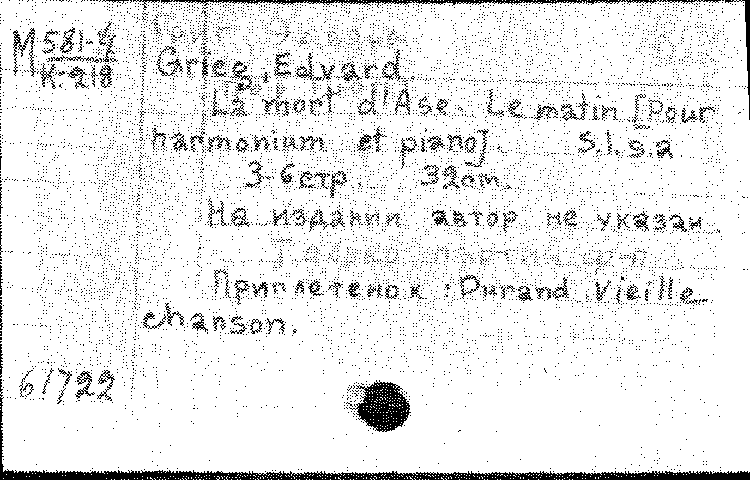 Григ Э
М 581-4
К-218
Grieg, Edvard.
La mort d'Ase. Le matin [pour
harmonium et piano]. S.l. s.a
3-6 стр. 32 cm.
На издании автор не указан
Т. только партия ф-п
Приплетенок: Durand. Vieille
chanson.
61722